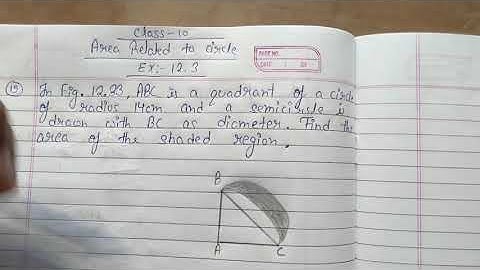 Class-10
Area Related to circle
Ex:- 12.3
PAGE NO.
DATE
15 In Fig. 12.23, ABC is a quadrant of a circle
of radius 14cm and a semicircle is
drawn with BC as diameter. Find the
area of the shaded region.
B
A
C